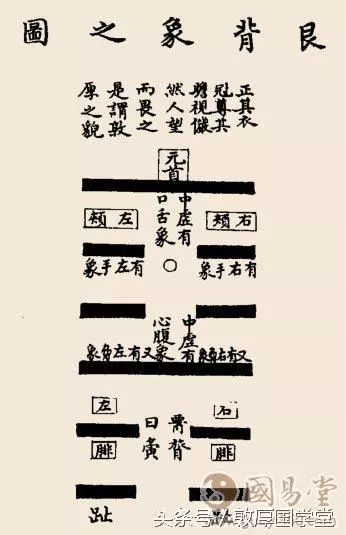 艮背象之圖
正其衣
冠尊其
瞻視儼
然人望
而畏之
是謂敦
厚之貌
元首
中虛有
口舌象
右頰
左頰
有右手象
有左手象
中虛有
心腹象
又有右象
又有左象
右
左
膂脊
曰夤
腓
腓
趾
趾
國易堂
头条号/敦厚国学堂